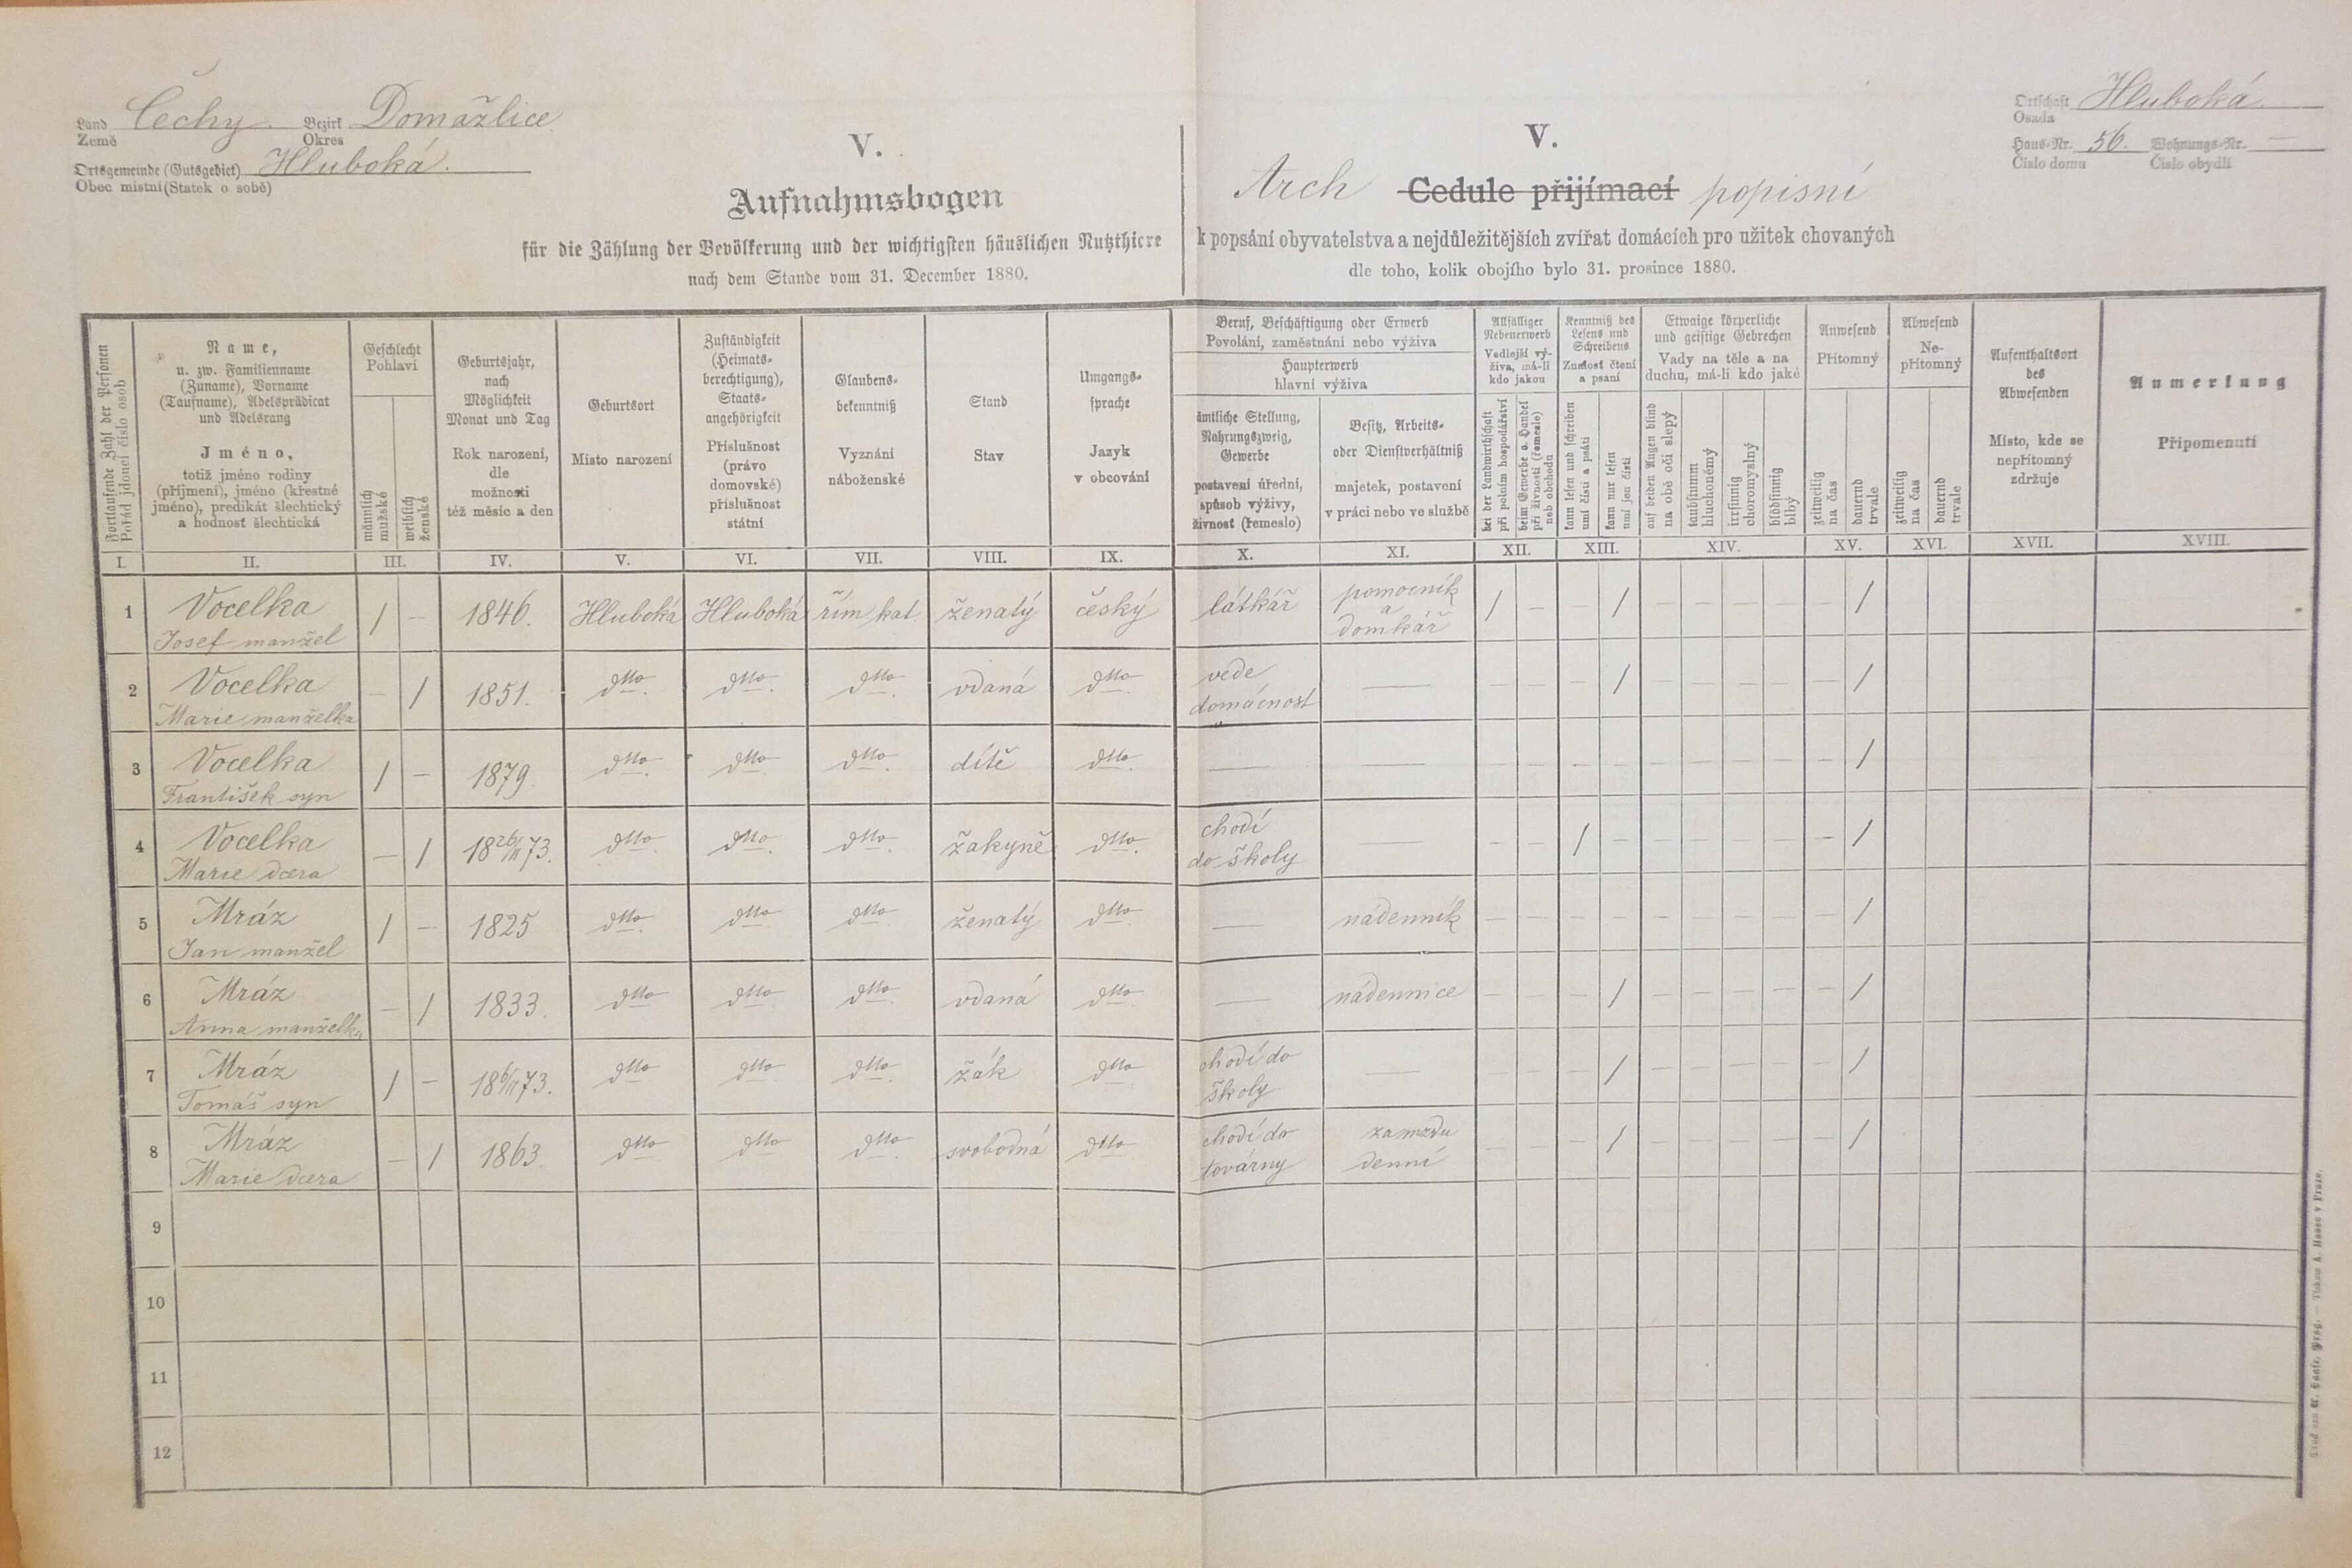 Land Čechy. Bezirk Domažlice
Země Okres
Ortsgemeinde (Gutsgebiet) Hluboká.
Obec místní (Statek o sobě)
V.
Aufnahmsbogen
für die Zählung der Bevölkerung und der wichtigsten häuslichen Nutzthiere
nach dem Stande vom 31. December 1880.
V.
Arch Cedule přijímací popisní
k popsání obyvatelstva a nejdůležitějších zvířat domácích pro užitek chovaných
dle toho, kolik obojího bylo 31. prosince 1880.
Ortschaft Hluboká.
Osada
Haus-Nr. 56. Wohnungs-Nr. —
Číslo domu Číslo obydlí
Fortlaufende Zahl der Personen
Pořád jdoucí číslo osob
Name,
u. zw. Familienname
(Zuname), Vorname
(Taufname), Adelsprädicat
und Adelsrang
Jméno,
totiž jméno rodiny
(příjmení), jméno (křestné
jméno), predikát šlechtický
a hodnosť šlechtická
Geschlecht
Pohlaví
männlich
mužské
weiblich
ženské
Geburtsjahr,
nach
Möglichkeit
Monat und Tag
Rok narození,
dle
možnosti
též měsíc a den
Geburtsort
Místo narození
Zuständigkeit
(Heimats-
berechtigung),
Staats-
angehörigkeit
Příslušnost
(právo
domovské)
příslušnost
státní
Glaubens-
bekenntniß
Vyznání
náboženské
Stand
Stav
Umgangs-
sprache
Jazyk
v obcování
Beruf, Beschäftigung oder Erwerb
Povolání, zaměstnání nebo výživa
Haupterwerb
hlavní výživa
ämtliche Stellung,
Nahrungszweig,
Gewerbe
postavení úřední,
spůsob výživy,
živnosť (řemeslo)
Besitz, Arbeits-
oder Dienstverhältniß
majetek, postavení
v práci nebo ve službě
Allfälliger
Nebenerwerb
Vedlejší vý-
živa, má-li
kdo jakou
bei der Landwirthschaft
při polním hospodářství
beim Gewerbe o. Handel
při živnosti (řemesle)
neb obchodu
Kenntniß des
Lesens und
Schreibens
Známost čtení
a psaní
kann lesen und schreiben
umí čísti a psáti
kann nur lesen
umí jen čísti
Etwaige körperliche
und geistige Gebrechen
Vady na těle a na
duchu, má-li kdo jaké
auf beiden Augen blind
na obě oči slepý
taubstumm
hluchoněmý
irrsinnig
choromyslný
blödsinnig
blbý
Anwesend
Přítomný
zeitweilig
na čas
dauernd
trvale
Abwesend
Ne-
přítomný
zeitweilig
na čas
dauernd
trvale
Aufenthaltsort
des
Abwesenden
Místo, kde se
nepřítomný
zdržuje
Anmerkung
Připomenutí
I. II. III. IV. V. VI. VII. VIII. IX. X. XI. XII. XIII. XIV. XV. XVI. XVII. XVIII.
1 Vocelka / — 1846. Hluboká Hluboká řím kat ženatý český látkář pomocník / — — / — — — — — /
Josef manžel a
domkář
2 Vocelka — / 1851. dtto. dtto. dtto. vdaná dtto. vede — — — — / — — — — — /
Marie manželka domácnost
3 Vocelka / — 1879. dtto. dtto dtto. dítě dtto. — — — — — — — — — — — /
František syn
4 Vocelka — / 18 26/11 73. dtto. dtto. dtto. žakyně dtto. chodí — — — / — — — — — — /
Marie dcera do školy
5 Mráz / — 1825 dtto. dtto dtto. ženatý dtto. — nádenník — — — — — — — — — /
Jan manžel
6 Mráz — / 1833. dtto dtto dtto. vdaná dtto. — nádennice — — — / — — — — — /
Anna manželka
7 Mráz / — 18 6/11 73. dtto dtto dtto žák dtto chodí do — — — — / — — — — — /
Tomáš syn školy
8 Mráz — / 1863. dtto dtto dtto svobodná dtto chodí do za mzdu — — — / — — — — — /
Marie dcera továrny denní
9
10
11
12
Druck von A. Haase, Prag. — Tiskem A. Haase v Praze.